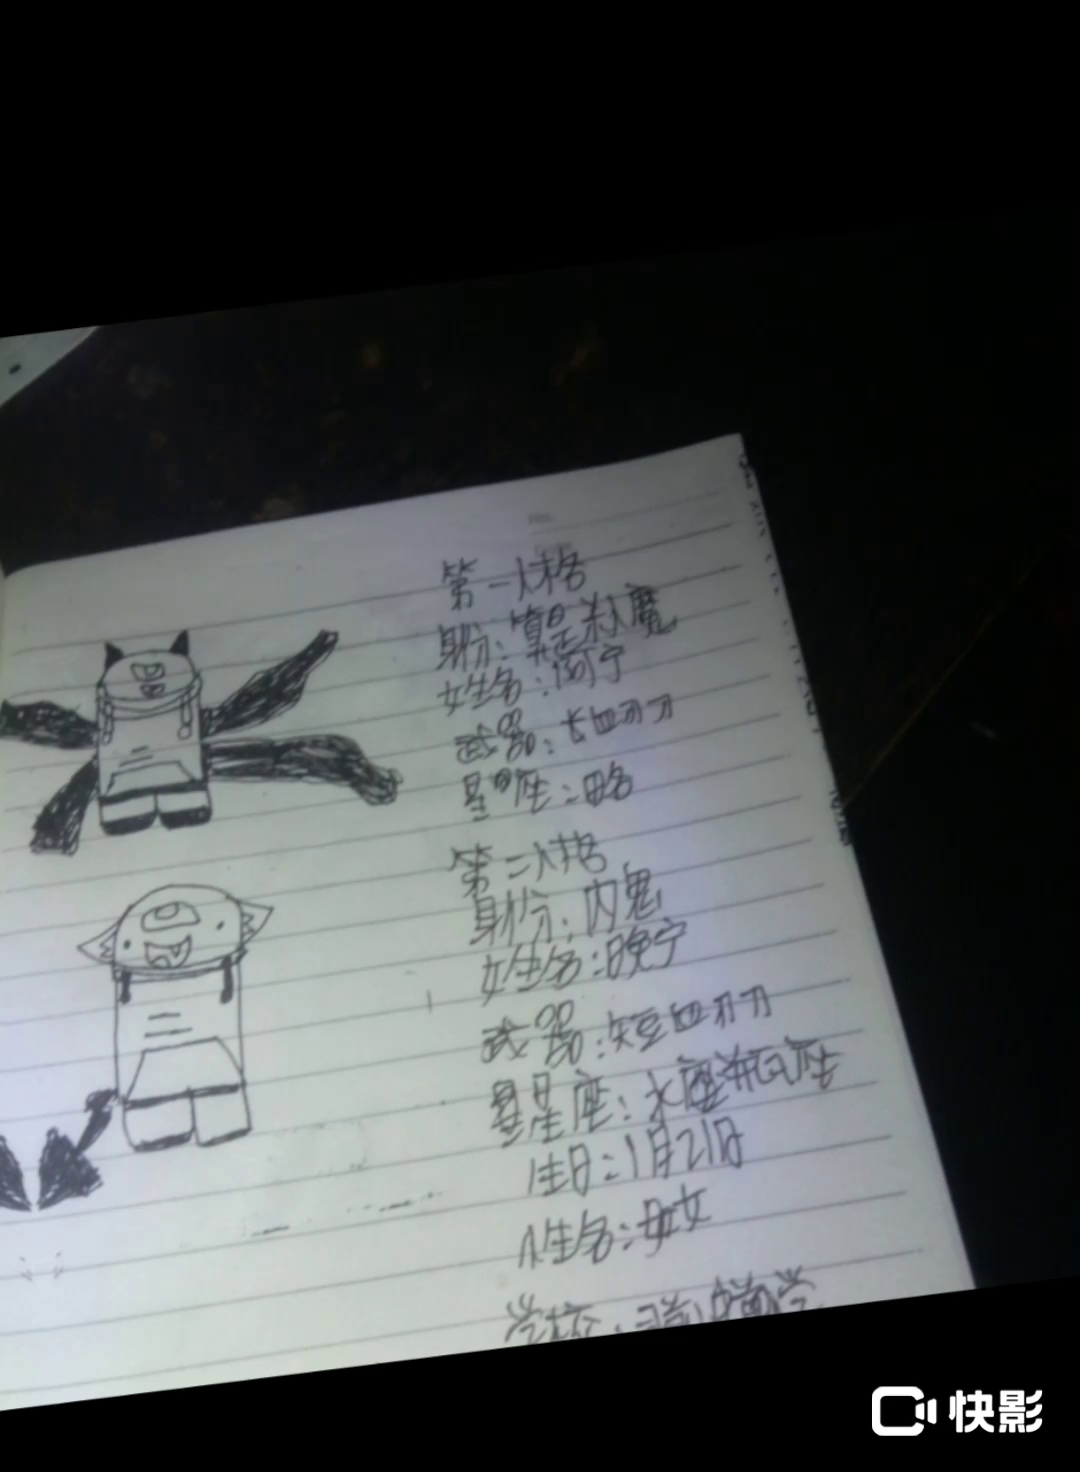 第一人格
身份：真正杀人魔
姓名：简宁
武器：长血刃刀
星座：略
第二人格
身份：内鬼
姓名：晚宁
武器：短血刃刀
星座：水瓶座
生日：1月21日
学校：
快影